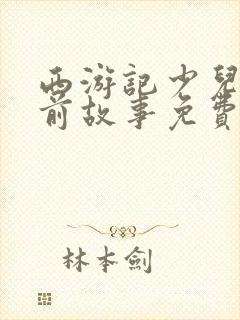 西游記少兒
前故事免費
林本劍